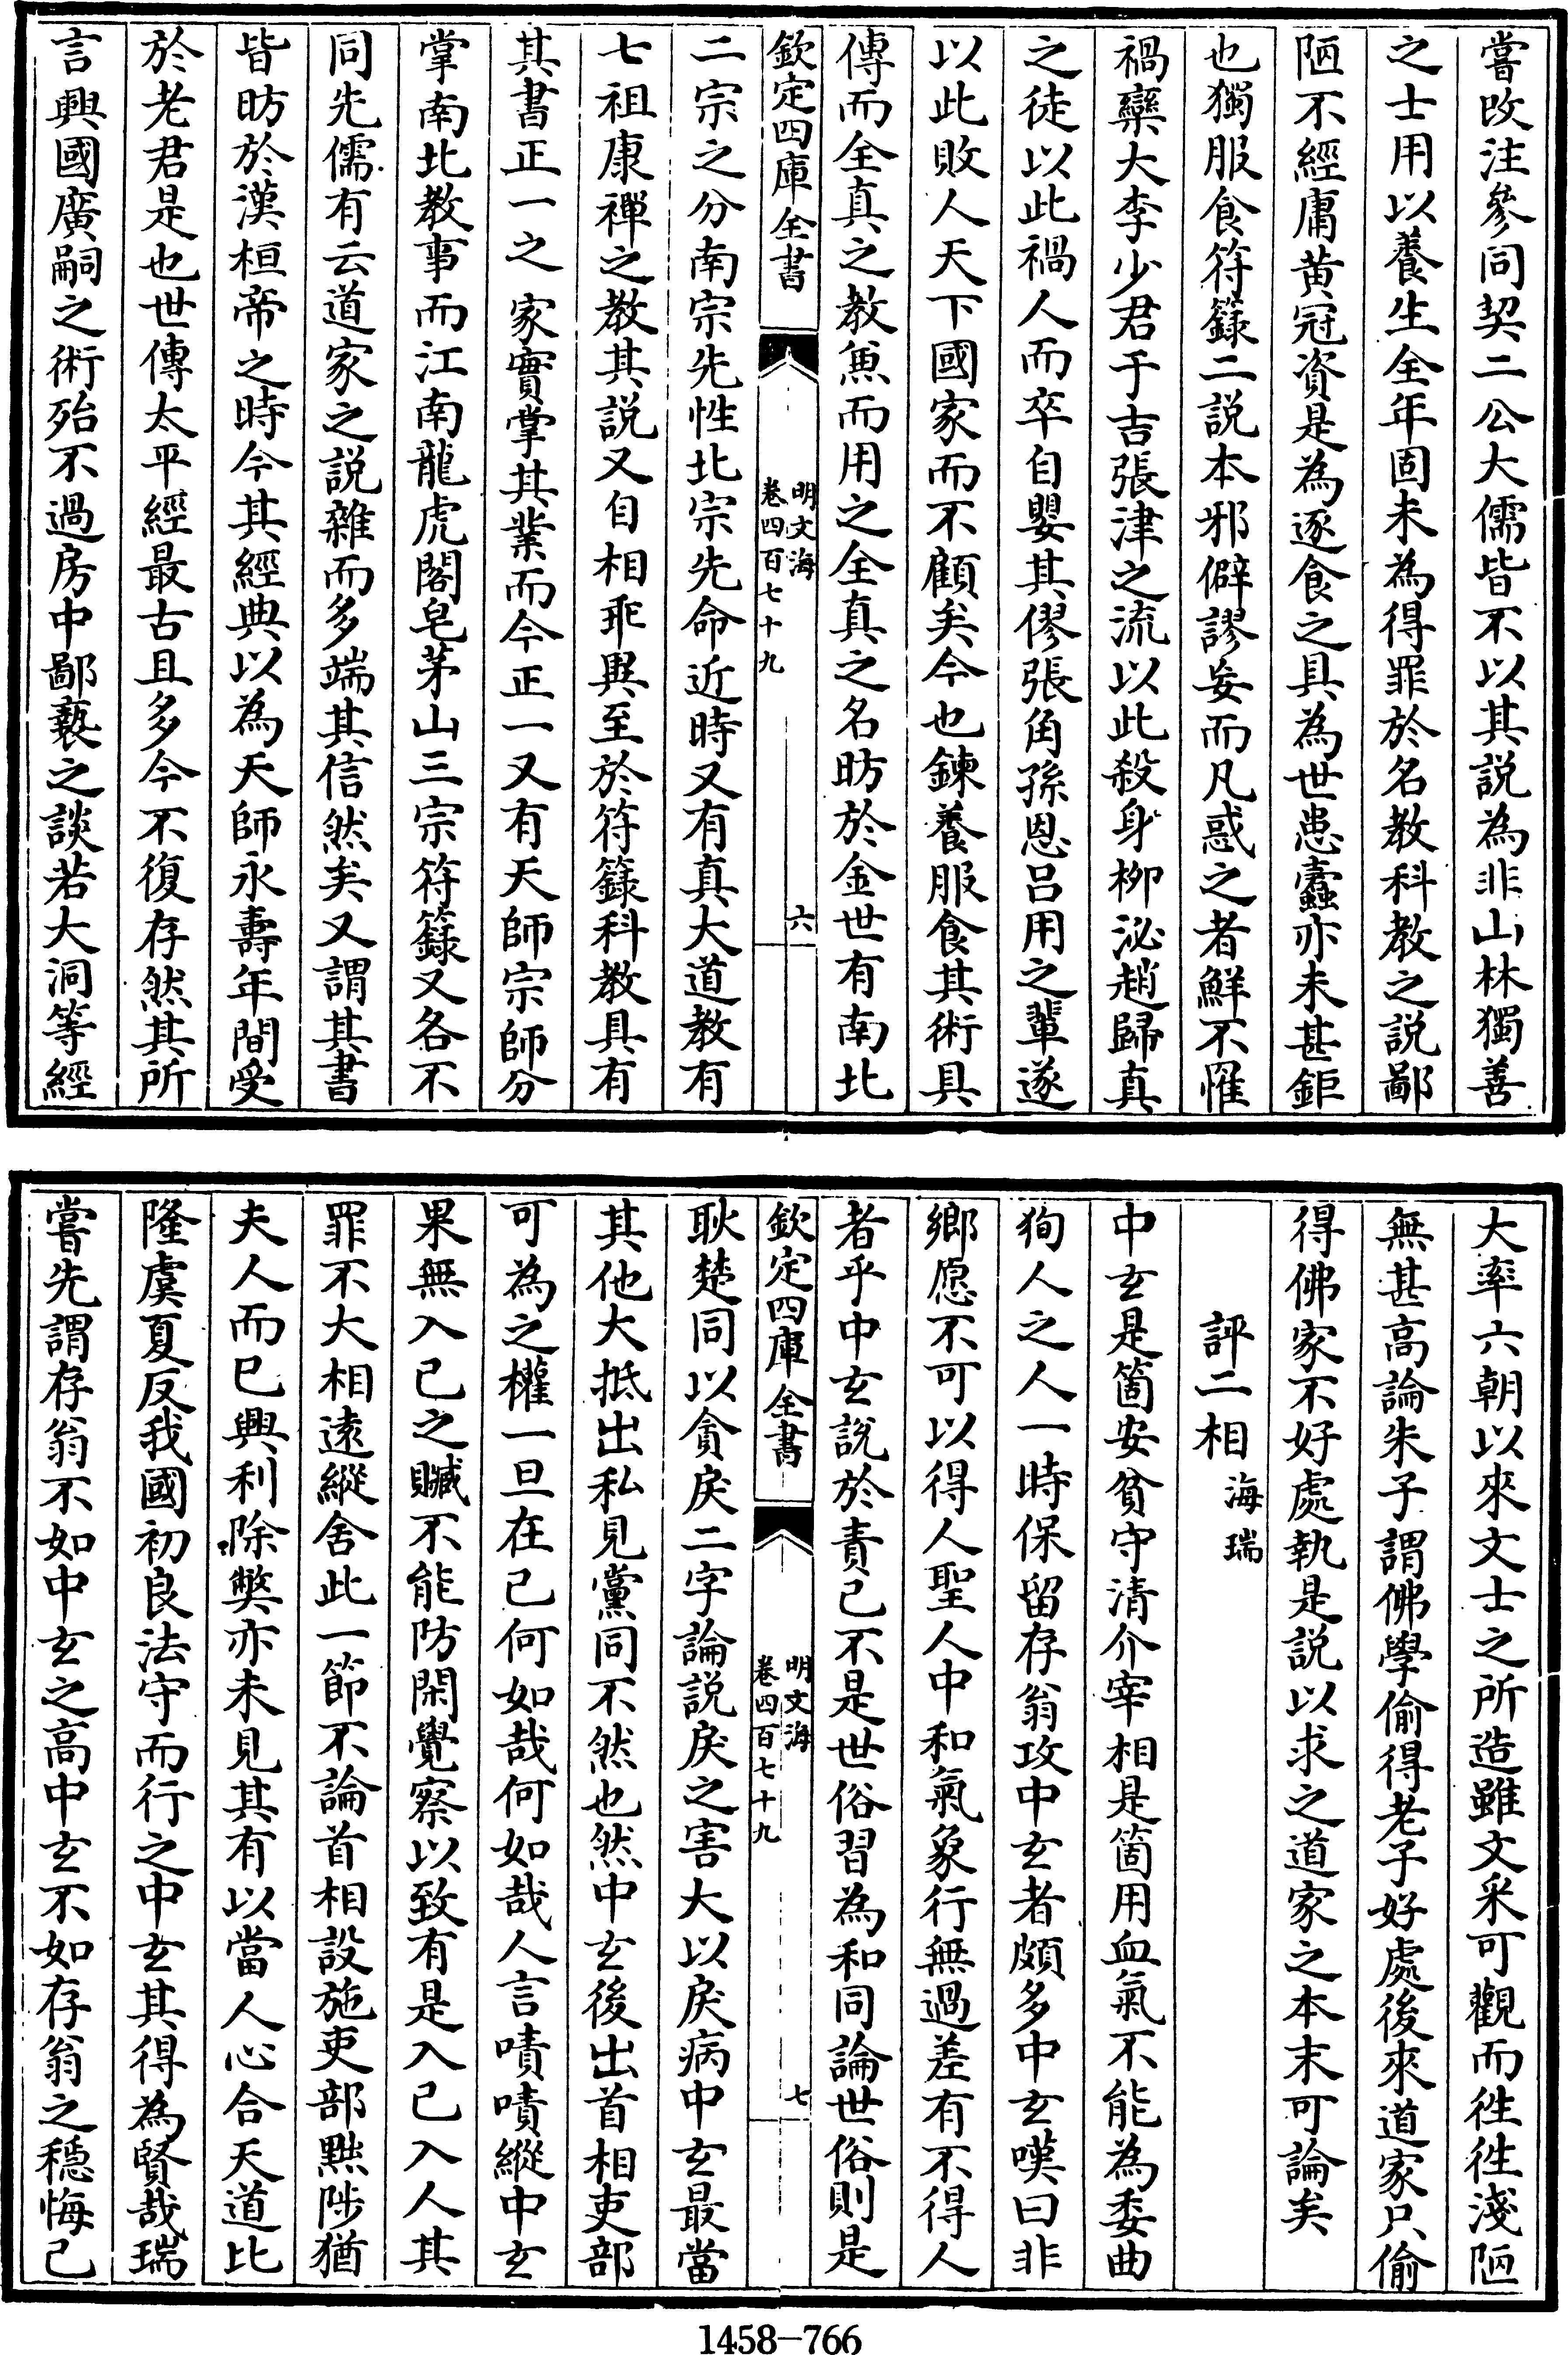 嘗改注參同契二公大儒皆不以其説為非山林獨善
之士用以養生全年固未為得罪於名教科教之説鄙
陋不經庸黄冠資是為逐食之具為世患蠹亦未甚鉅
也獨服食符籙二説本邪僻謬妄而凡惑之者鮮不罹
禍欒大李少君于吉張津之流以此殺身柳泌趙歸真
之徒以此禍人而卒自嬰其僇張角孫恩吕用之輩遂
以此敗人天下國家而不顧矣今也鍊養服食其術具
傳而全真之教兼而用之全真之名昉於金世有南北
欽定四庫全書
明文海
卷四百七十九
六
二宗之分南宗先性北宗先命近時又有真大道教有
七祖康禪之教其説又自相乖異至於符籙科教具有
其書正一之家實掌其業而今正一又有天師宗師分
掌南北教事而江南龍虎閤皂茅山三宗符籙又各不
同先儒有云道家之説雜而多端其信然矣又謂其書
皆昉於漢桓帝之時今其經典以為天師永壽年間受
於老君是也世傳太平經最古且多今不復存然其所
言興國廣嗣之術殆不過房中鄙褻之談若大洞等經
大率六朝以來文士之所造雖文采可觀而徃徃淺陋
無甚高論朱子謂佛學偷得老子好處後來道家只偷
得佛家不好處執是説以求之道家之本末可論矣
評二相 海瑞
中玄是箇安貧守清介宰相是箇用血氣不能為委曲
狥人之人一時保留存翁攻中玄者頗多中玄嘆曰非
鄉愿不可以得人聖人中和氣象行無過差有不得人
者乎中玄説於責己不是世俗習為和同論世俗則是
欽定四庫全書
明文海
卷四百七十九
七
耿楚同以貪戾二字論説戾之害大以戾病中玄最當
其他大抵出私見黨同不然也然中玄後出首相吏部
可為之權一旦在己何如哉何如哉人言嘖嘖縱中玄
果無入己之贓不能防閑覺察以致有是入已入人其
罪不大相遠縱舍此一節不論首相設施吏部黜陟猶
夫人而已興利除弊亦未見其有以當人心合天道比
隆虞夏反我國初良法守而行之中玄其得為賢哉瑞
嘗先謂存翁不如中玄之高中玄不如存翁之穩悔己
1458-766